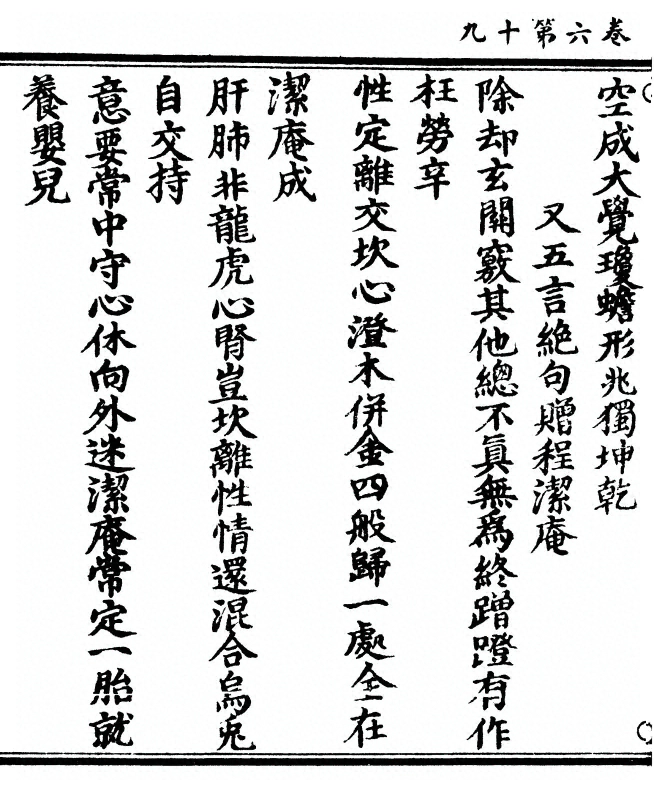 卷六第十九
空成大覺瓊蟾形兆獨坤乾
又五言絶句贈程潔庵
除却玄關竅其他總不真無爲終蹭蹬有作
枉勞辛
性定離交坎心澄木併金四般歸一處全在
潔庵成
肝肺非龍虎心腎豈坎離性情還混合烏兎
自交持
意要常中守心休向外迷潔庵常定一胎就
養嬰兒